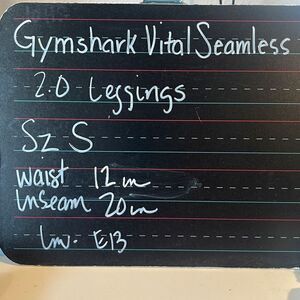 Gymshark Vital Seamless
2.0 Leggings
Sz S
Waist 12 in
Inseam 20 in
Inv. E13